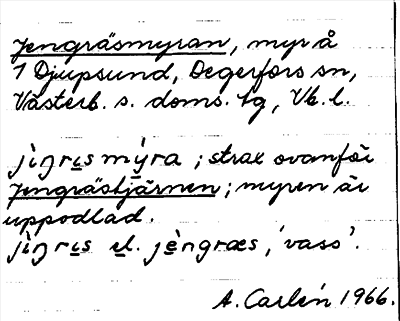 Jengräsmyran, myr å
1 Djupsund, Degerfors sn,
Västerb. s. doms. tg, Vb. l.
jìŋris my̷ra ; strax ovanför
Jengrästjärnen ; myren är
uppodlad.
jìŋris el. jèngræs, 'vass'.
A. Carlén 1966.